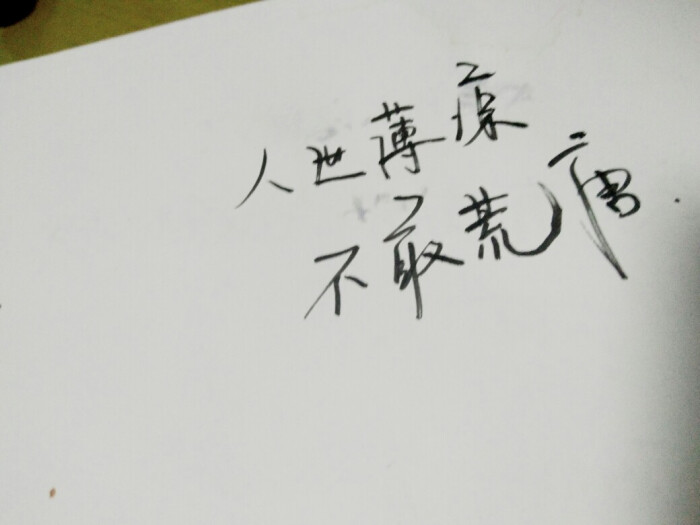 人世薄凉
不敢荒唐